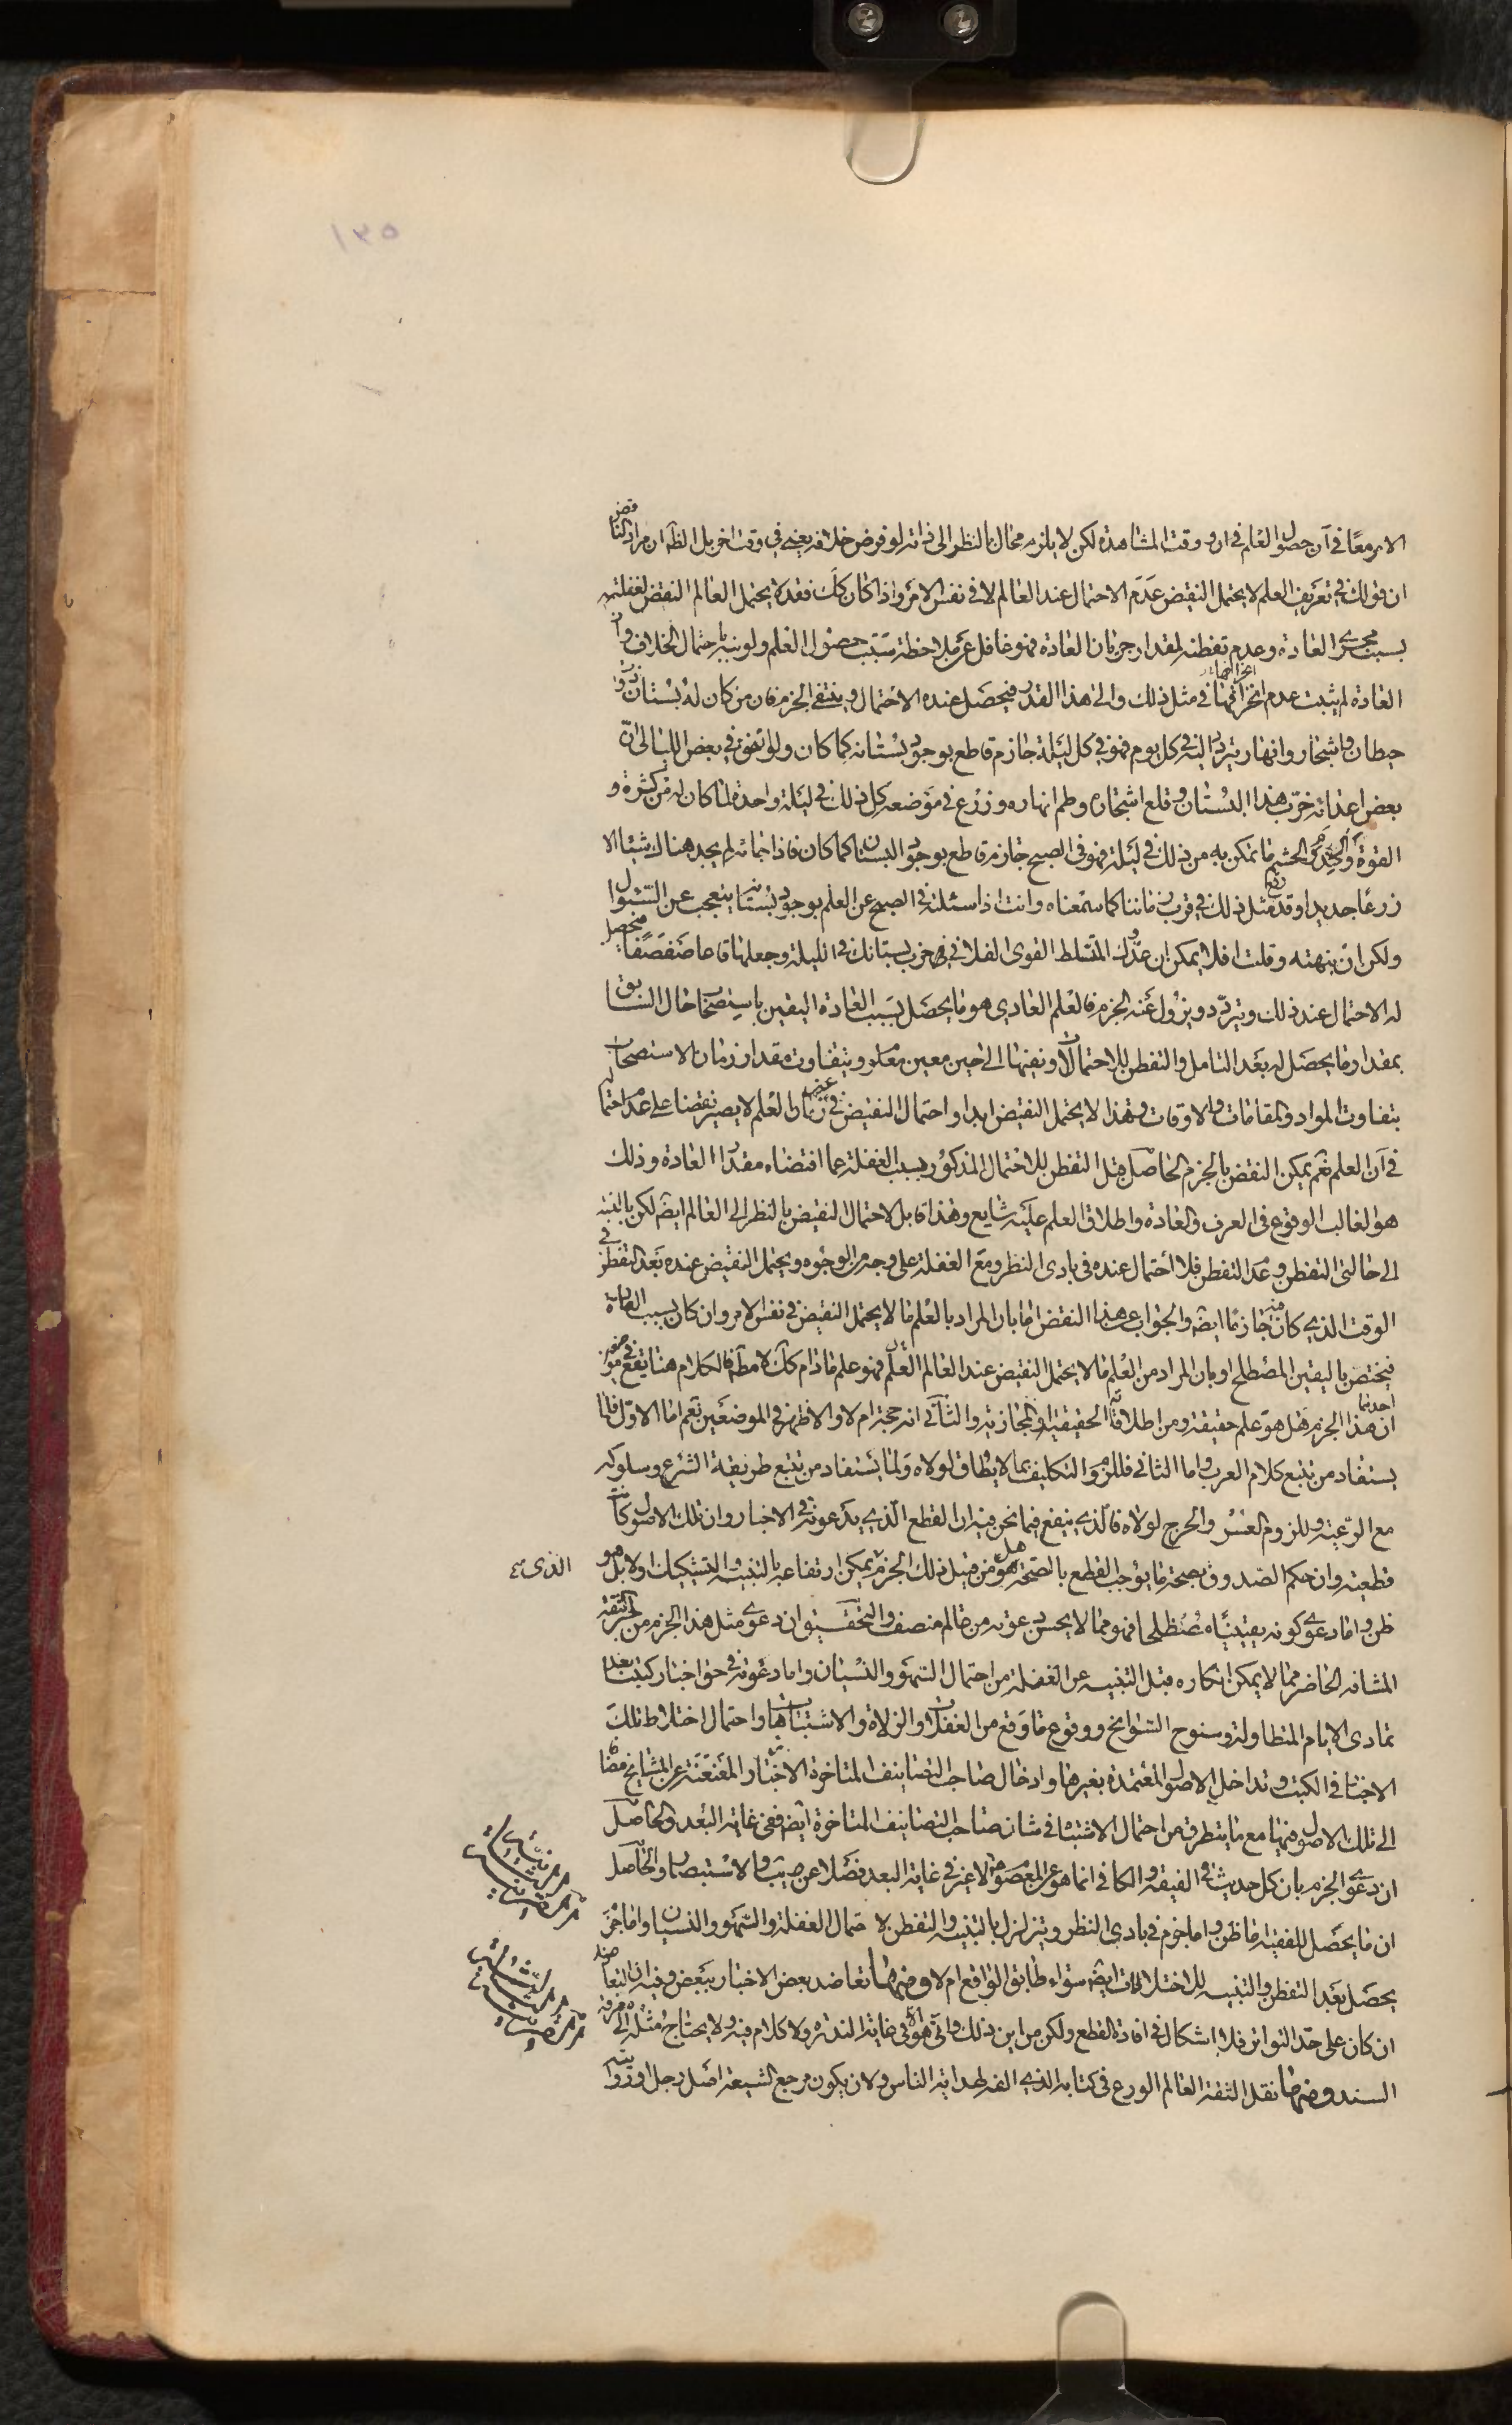 ١٣٥
الامر معًا في آن حصول العلم في ان وقت المشاهدة لكن لا يلزم محال بالنظر الى ذاته لو فرض خلافه يعني في وقت اخر بل الظ ان مراد الناقض
ان قولك في تعريف العلم لا يحتمل النقيض عدم الاحتمال عند العالم لا في نفس الامر واذا كان كك فقد لا يحتمل العالم النقيض لغفلته
بسبب مجرى العادة وعدم تفطنه لمقدار جريان العادة فهو غافل عن ملاحظة سبب حصول العلم ولو نبه باحتمال الخلاف وان
العادة لم يثبت عدم انخرامها في مثل ذلك والى هذا القدر فيحصل عنده الاحتمال وينتفي الجزم فان من كان له بستان ذو
حيطان واشجار وانهار يتردد اليه في كل يوم فهو في كل ليلة جازم قاطع بوجود بستانه كما كان ولو اتفق في بعض الليالي ان
بعض اعدائه خرّب هذا البستان وقلع اشجاره وطم انهاره وزرع في موضعه كل ذلك في ليلة واحدة لما كان له من كثرة و
القوة والحشم ما تمكن به من ذلك في ليلة فهو في الصبح جازم قاطع بوجود البستان كما كان فاذا جائه لم يجد هناك شيئا الا
زرعًا جديدا وقد وقع مثل ذلك في قرب زماننا كما سمعناه وانت اذا سئلته في الصبح عن العلم بوجود بستانه يتعجب عن السئوال
ولكن ان نبهته وقلت افلا يمكن ان عدوّك المتسلط القوى الفلاني خرب بستانك في الليلة وجعلها قاعا صفصفا فيحصل
له الاحتمال عند ذلك ويتردّد ويزول عنه الجزم فالعلم العادي هو ما يحصل بسبب العادة اليقين باستصحاب الحال السابق
بمقدار ما يحصل له بعد التامل والتفطن للاحتمالات ونفيها الى حين معين معلوم ويتفاوت مقدار زمان الاستصحاب
بتفاوت المواد والمقامات والاوقات وهذا لا يحتمل النقيض ابدا واحتمال النقيض في غير زمان العلم لا يصير نقضا على عدم احتماله
في آن العلم نعم يمكن النقض بالجزم الحاصل قبل التفطن للاحتمال المذكور بسبب الغفلة عما اقتضاه مقدار العادة وذلك
هو الغالب الوقوع في العرف والعادة واطلاق العلم عليه شايع وهذا قابل لاحتمال النقيض بالنظر الى العالم ايضا لكن بالنسبة
الى حالتي التفطن وعدم التفطن فلا احتمال عنده في بادى النظر ومع الغفلة على وجه من الوجوه ويحتمل النقيض عنده بعد التفطن في
الوقت الذي كان فيه جازمًا ايضا والجواب عن هذا النقض اما بان المراد بالعلم ما لا يحتمل النقيض في نفس الامر وان كان بسبب العادة
فيختص باليقين المصطلح او بان المراد من العلم ما لا يحتمل النقيض عند العالم فهو علم ما دام كك لا مطلقا فالكلام هنا يقع في موضعين
احدهما ان هذا الجزم هل هو علم حقيقة ومن اطلاقاته الحقيقية او المجازية والثاني انه حجة ام لا والاظهر في الموضعين نعم اما الاول فلما
يستفاد من تتبع كلام العرب واما الثاني فللزوم التكليف بما لا يطاق لولاه ولما يستفاد من تتبع طريقة الشرع وسلوكه
مع الرعيّة وللزوم العسر والحرج لولاه فالذي ينفع فيما نحن فيه ان القطع الّذي يدّعونه في الاخبار وان تلك الاصول كانت
قطعية وان حكم الصدوق بصحة ما يوجب القطع بالصحة هل هو من قبيل ذلك الجزم يمكن ارتفاعه بالتنبيه والتشكيك او لا بل هو
الذى
ظن واما دعوى كونه يقينيّاه مصطلحا فهو مما لا يحسن دعوته من عالم منصف والتحقيق ان دعوى مثل هذا الجزم من خبر الثقة
المشافه الحاضر مما لا يمكن انكاره قبل التنبيه عن الغفلة من احتمال السهو والنسيان واما دعوته في حق اخبار كتبنا بعد
تمادى الايام المتطاولة وسنوح السوانح ووقوع ما وقع من الغفلات والزلاة والاشتباهات واحتمال اختلاط تلك
الاخبار في الكتب وتداخل الاصول المعتمدة بغيرها وادخال صاحب التصانيف المتاخرة الاخبار المعنعنة عن المشايخ مضافا
الى تلك الاصول فيها مع ما يتطرق من احتمال الاشتباه في شان صاحب التصانيف المتاخرة ايضا ففي غاية البعد والحاصل
ان دعوى الجزم بان كل حديث في الفقيه والكافي انما هو عن المعصوم لا غير في غاية البعد فضلا عن التهذيب والاستبصار والحاصل
ان ما يحصل للفقيه اما ظن واما جزم في بادى النظر ويتزلزل بالتنبيه والتفطن لاحتمال الغفلة والسهو والنسيان واما جزم
يحصل بعد التفطن والتنبيه للاختلالات ايضا سواء طابق الواقع ام لا ومنها تعاضد بعض الاخبار ببعض وفيه ان التعاضد
ان كان على حد التواتر فلا اشكال في افادة القطع ولكن من اين ذلك وانّى هو في غاية الندرة ولا كلام فيه ولا يحتاج مثله الى معرفة
السند ومنها نقل الثقة العالم الورع في كتابه الذي الفه لهداية الناس ولان يكون مرجع الشيعة اصل رجل او رواية